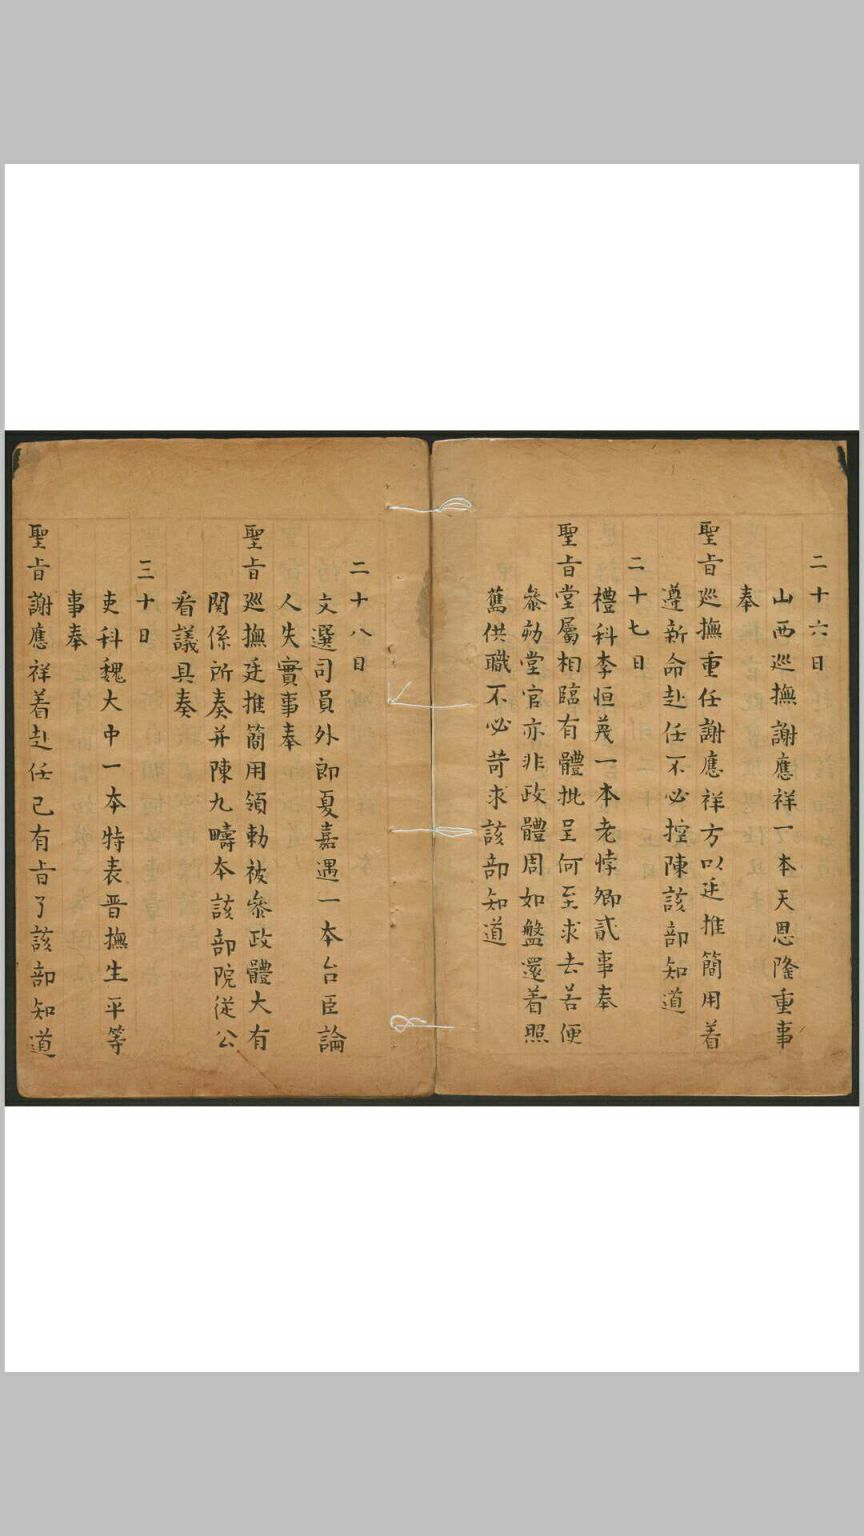 二十六日
山西巡撫謝應祥一本天恩隆重事
奉
聖旨巡撫重任謝應祥方以廷推簡用着
遵新命赴任不必控陳該部知道
二十七日
禮科李恒茂一本老悖卿貳事奉
聖旨堂屬相臨有體批呈何至求去若便
叅劾堂官亦非政體周如盤還着照
舊供職不必苛求該部知道
二十八日
文選司員外郎夏嘉遇一本台臣論
人失實事奉
聖旨巡撫廷推簡用領勅被叅政體大有
関係所奏并陳九疇本該部院從公
看議具奏
三十日
吏科魏大中一本特表晋撫生平等
事奉
聖旨謝應祥着赴任已有旨了該部知道